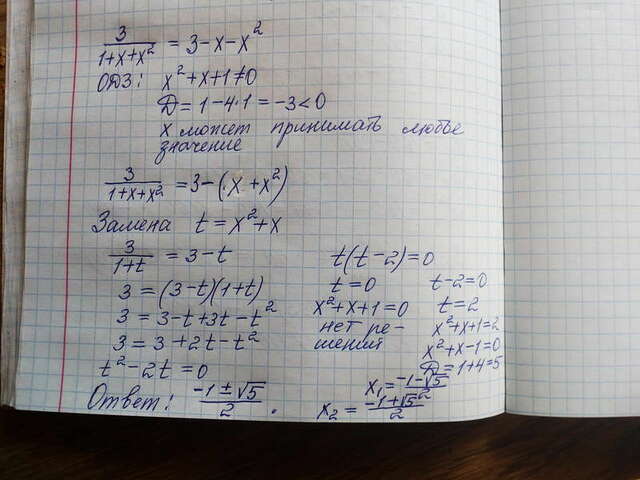 3/(1+x+x²) = 3-x-x²
ОДЗ: x²+x+1≠0
D = 1-4·1 = -3<0
x может принимать любые
значение
3/(1+x+x²) = 3-(x+x²)
Замена t=x²+x
3/(1+t) = 3-t
3 = (3-t)(1+t)
3 = 3-t+3t-t²
3 = 3+2t-t²
t²-2t=0
t(t-2)=0
t=0 t-2=0
x²+x+1=0 t=2
нет ре- x²+x+1=2
шений x²+x-1=0
D=1+4=5
x₁=(-1-√5)/2
x₂=(-1+√5)/2
Ответ: (-1±√5)/2.